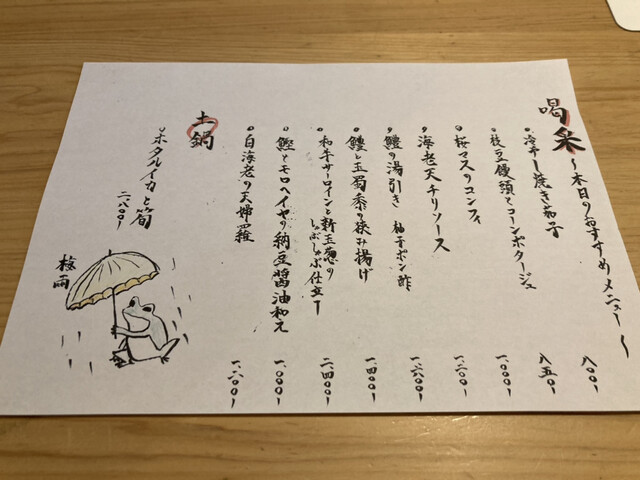 喝采
〜本日のおすすめメニュー〜
冷やし焼き茄子 八〇〇
枝豆饅頭とコーンポタージュ 八五〇
桜マスのコンフィ 一、〇〇〇
海老天チリソース 一、二〇〇
鱧の湯引き 柚子ポン酢 一、六〇〇
鱧と玉蜀黍の挟み揚げ 一、四〇〇
和牛サーロインと新玉葱の
しゃぶしゃぶ仕立て 二、四〇〇
鰹とモロヘイヤの納豆醤油和え 一、〇〇〇
白海老の天婦羅 一、二〇〇
土鍋
ホタルイカと筍 二、八〇〇
梅雨